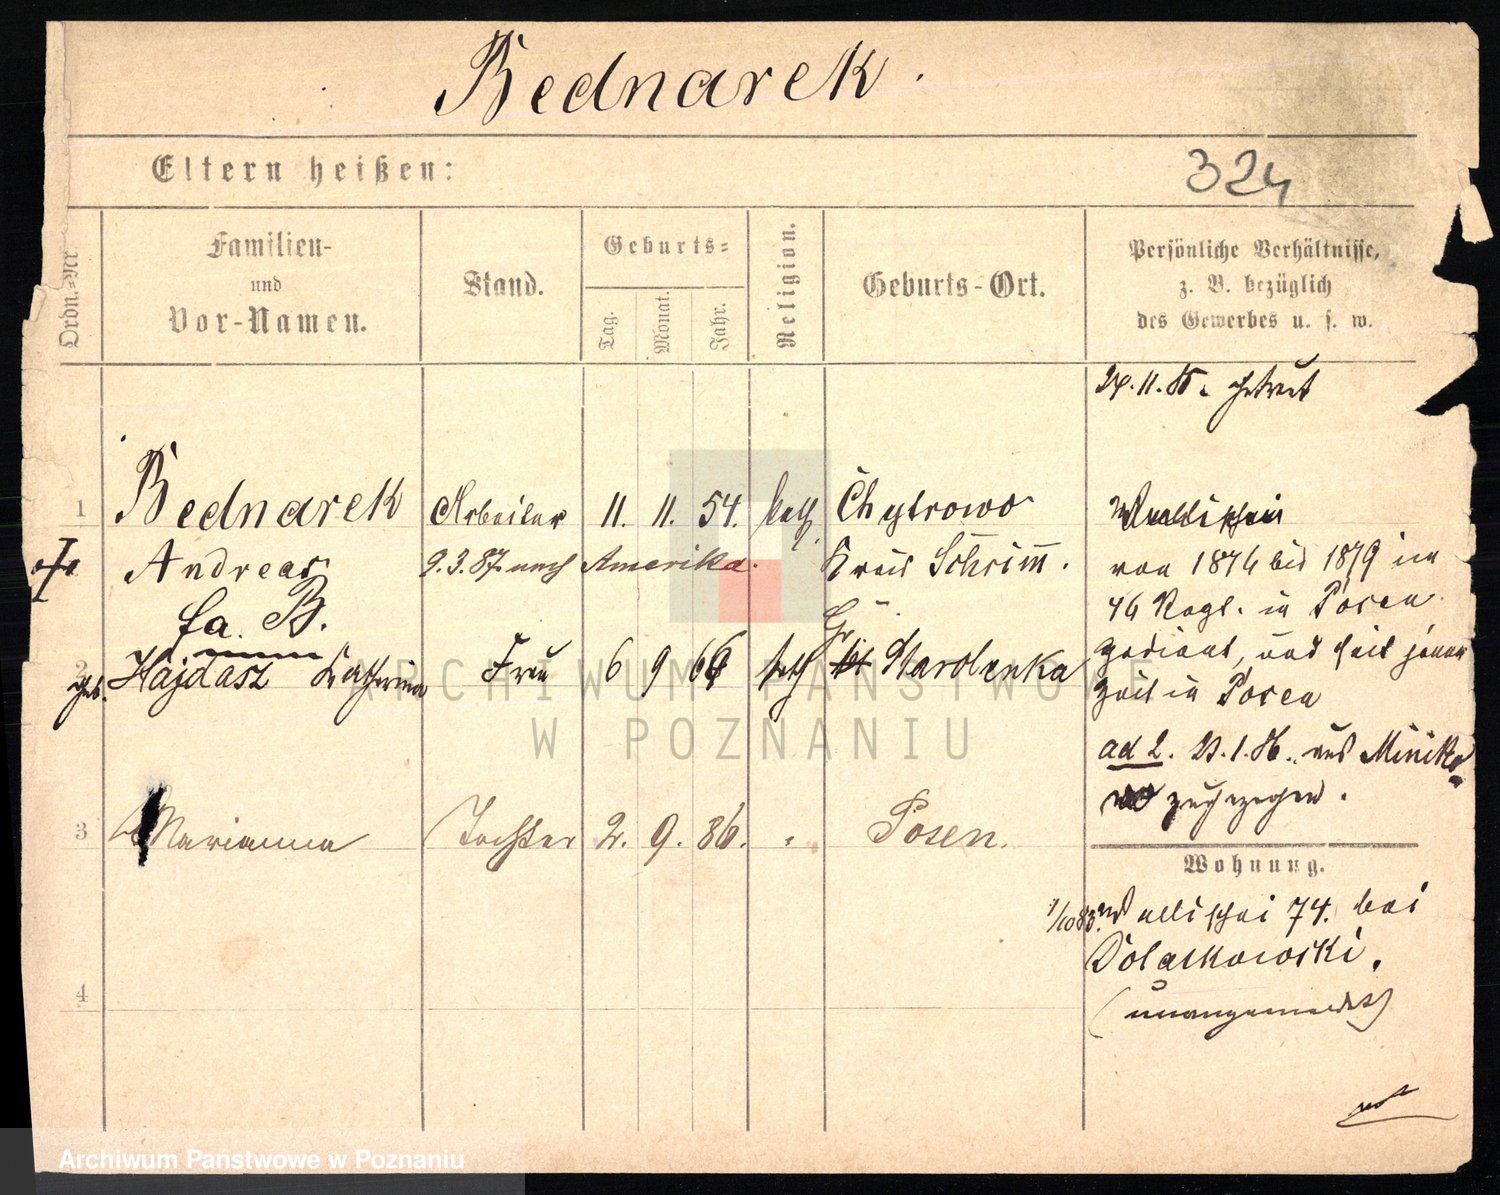 Bednarek.
Eltern heißen:
324
Ordn.-Nr
Familien- und Vor-Namen.
Stand.
Geburts-
Tag.
Monat.
Jahr.
Religion.
Geburts-Ort.
Persönliche Verhältnisse,
z. B. bezüglich
des Gewerbes u. s. w.
1 Bednarek Arbeiter 11. 11. 54. kath. Chytrowo
Andreas 9.3.87. nach Amerika. Kreis Schrimm.
fa. B.
2 geb. Hajdasz Katharina Frau 6 9 66 kath Gr. Starolenka
3 Marianna Tochter 2. 9. 86. Posen.
4
Wallischei
von 1876 bis 1879 in
46 Regt. in Posen
gedient, und seit jener
Zeit in Posen
ad 2. 1. 86. aus Miniko-
wo zugezogen.
Wohnung.
1/10 83. Wallischei 74. bei
(unangemeldet)
ARCHIWUM PAŃSTWOWE
W POZNANIU
Archiwum Państwowe w Poznaniu